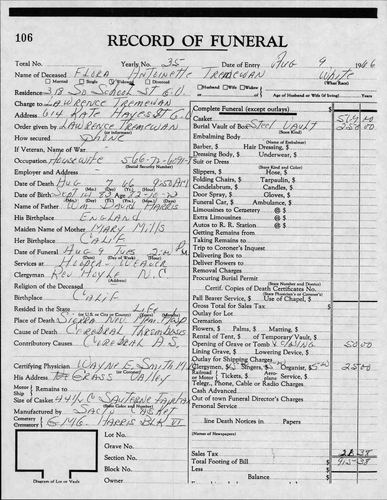 106 RECORD OF FUNERAL
Total No. Yearly No. 35 Date of Entry Aug 9 1966
Name of Deceased Flora Antoinette Tremewan White
Married Single Widowed Divorced Husband Wife Widow (What Race)
Residence 318 So School St G.V. Age of Husband or Wife (if living) Years
Charge to Lawrence Tremewan
Address 614 Kate Hayes St G.V.
Order given by Lawrence Tremewan
How secured Phone
If Veteran, Name of War
Occupation Housewife
(Social Security Number)
Employer and Address
Date of Death Aug
Date of Birth Sept
(Mo.) (Day) (Yr.)
Name of Father Wm David Harris
His Birthplace England
Maiden Name of Mother Mary Mills
Her Birthplace Calif
Date of Funeral Aug 9 Tues 2:00 P
Services at Hooper-Weaver
Clergyman Rev Hoyle N.C.
(Address)
Religion of the Deceased
Birthplace Calif
Resided in the State Life
Place of Death Sierra Nev Mem Hosp
Cause of Death Cerebral Thrombosis
Contributory Causes Cerebral A.S.
Certifying Physician Wayne E Smith M
His Address Grass Valley
Motor Remains to
Ship
Size of Casket
(State Color and Number)
Manufactured by Sac'to Casket
Cemetery E.M.G. Harris Blk VI
Lot No.
Grave No.
Section No.
Block No.
Owner
Diagram of Lot or Vault
Complete Funeral (except outlays) $
Casket
Burial Vault of Box Steel Vault 250 00
Embalming Body
(Name of Embalmer)
Barber, $ Hair Dressing, $
Dressing Body, $ Underwear, $
Suit or Dress
(State Kind and Color)
Slippers, $ Hose, $
Folding Chairs, $ Tarpaulin, $
Candelabrum, $ Candles, $
Door Spray, $ Gloves, $
Funeral Car, $ Ambulance, $
Limousines to Cemetery @ $
Extra Limousines @ $
Autos to R. R. Station @ $
Getting Remains from
Taking Remains to
Trip to Coroner's Inquest
Delivering Box to
Deliver Flowers to
Removal Charges
Procuring Burial Permit
(State Number and District)
Certif. Copies of Death Certificates No.
Pall Bearer Service, $ Use of Chapel, $
Gross Total for Sales Tax: $
Outlay for Lot
Cremation
Flowers, $ Palms, $ Matting, $
Rental of Tent, $ of Temporary Vault, $
Opening of Grave or Tomb & Closing 50 00
Lining Grave, $ Lowering Device, $
Outlay for Shipping Charges
Clergyman, $ Singers, $ Organist, $ 25 00
Railroad or Motor Tickets, $ Aeroplane Service, $
Telegr., Phone, Cable or Radio Charges
Cash Advanced
Out of town Funeral Director's Charges
Personal Service
line Death Notices in Papers
(Names of Newspapers)
Sales Tax
Total Footing of Bill $
Less
Balance $